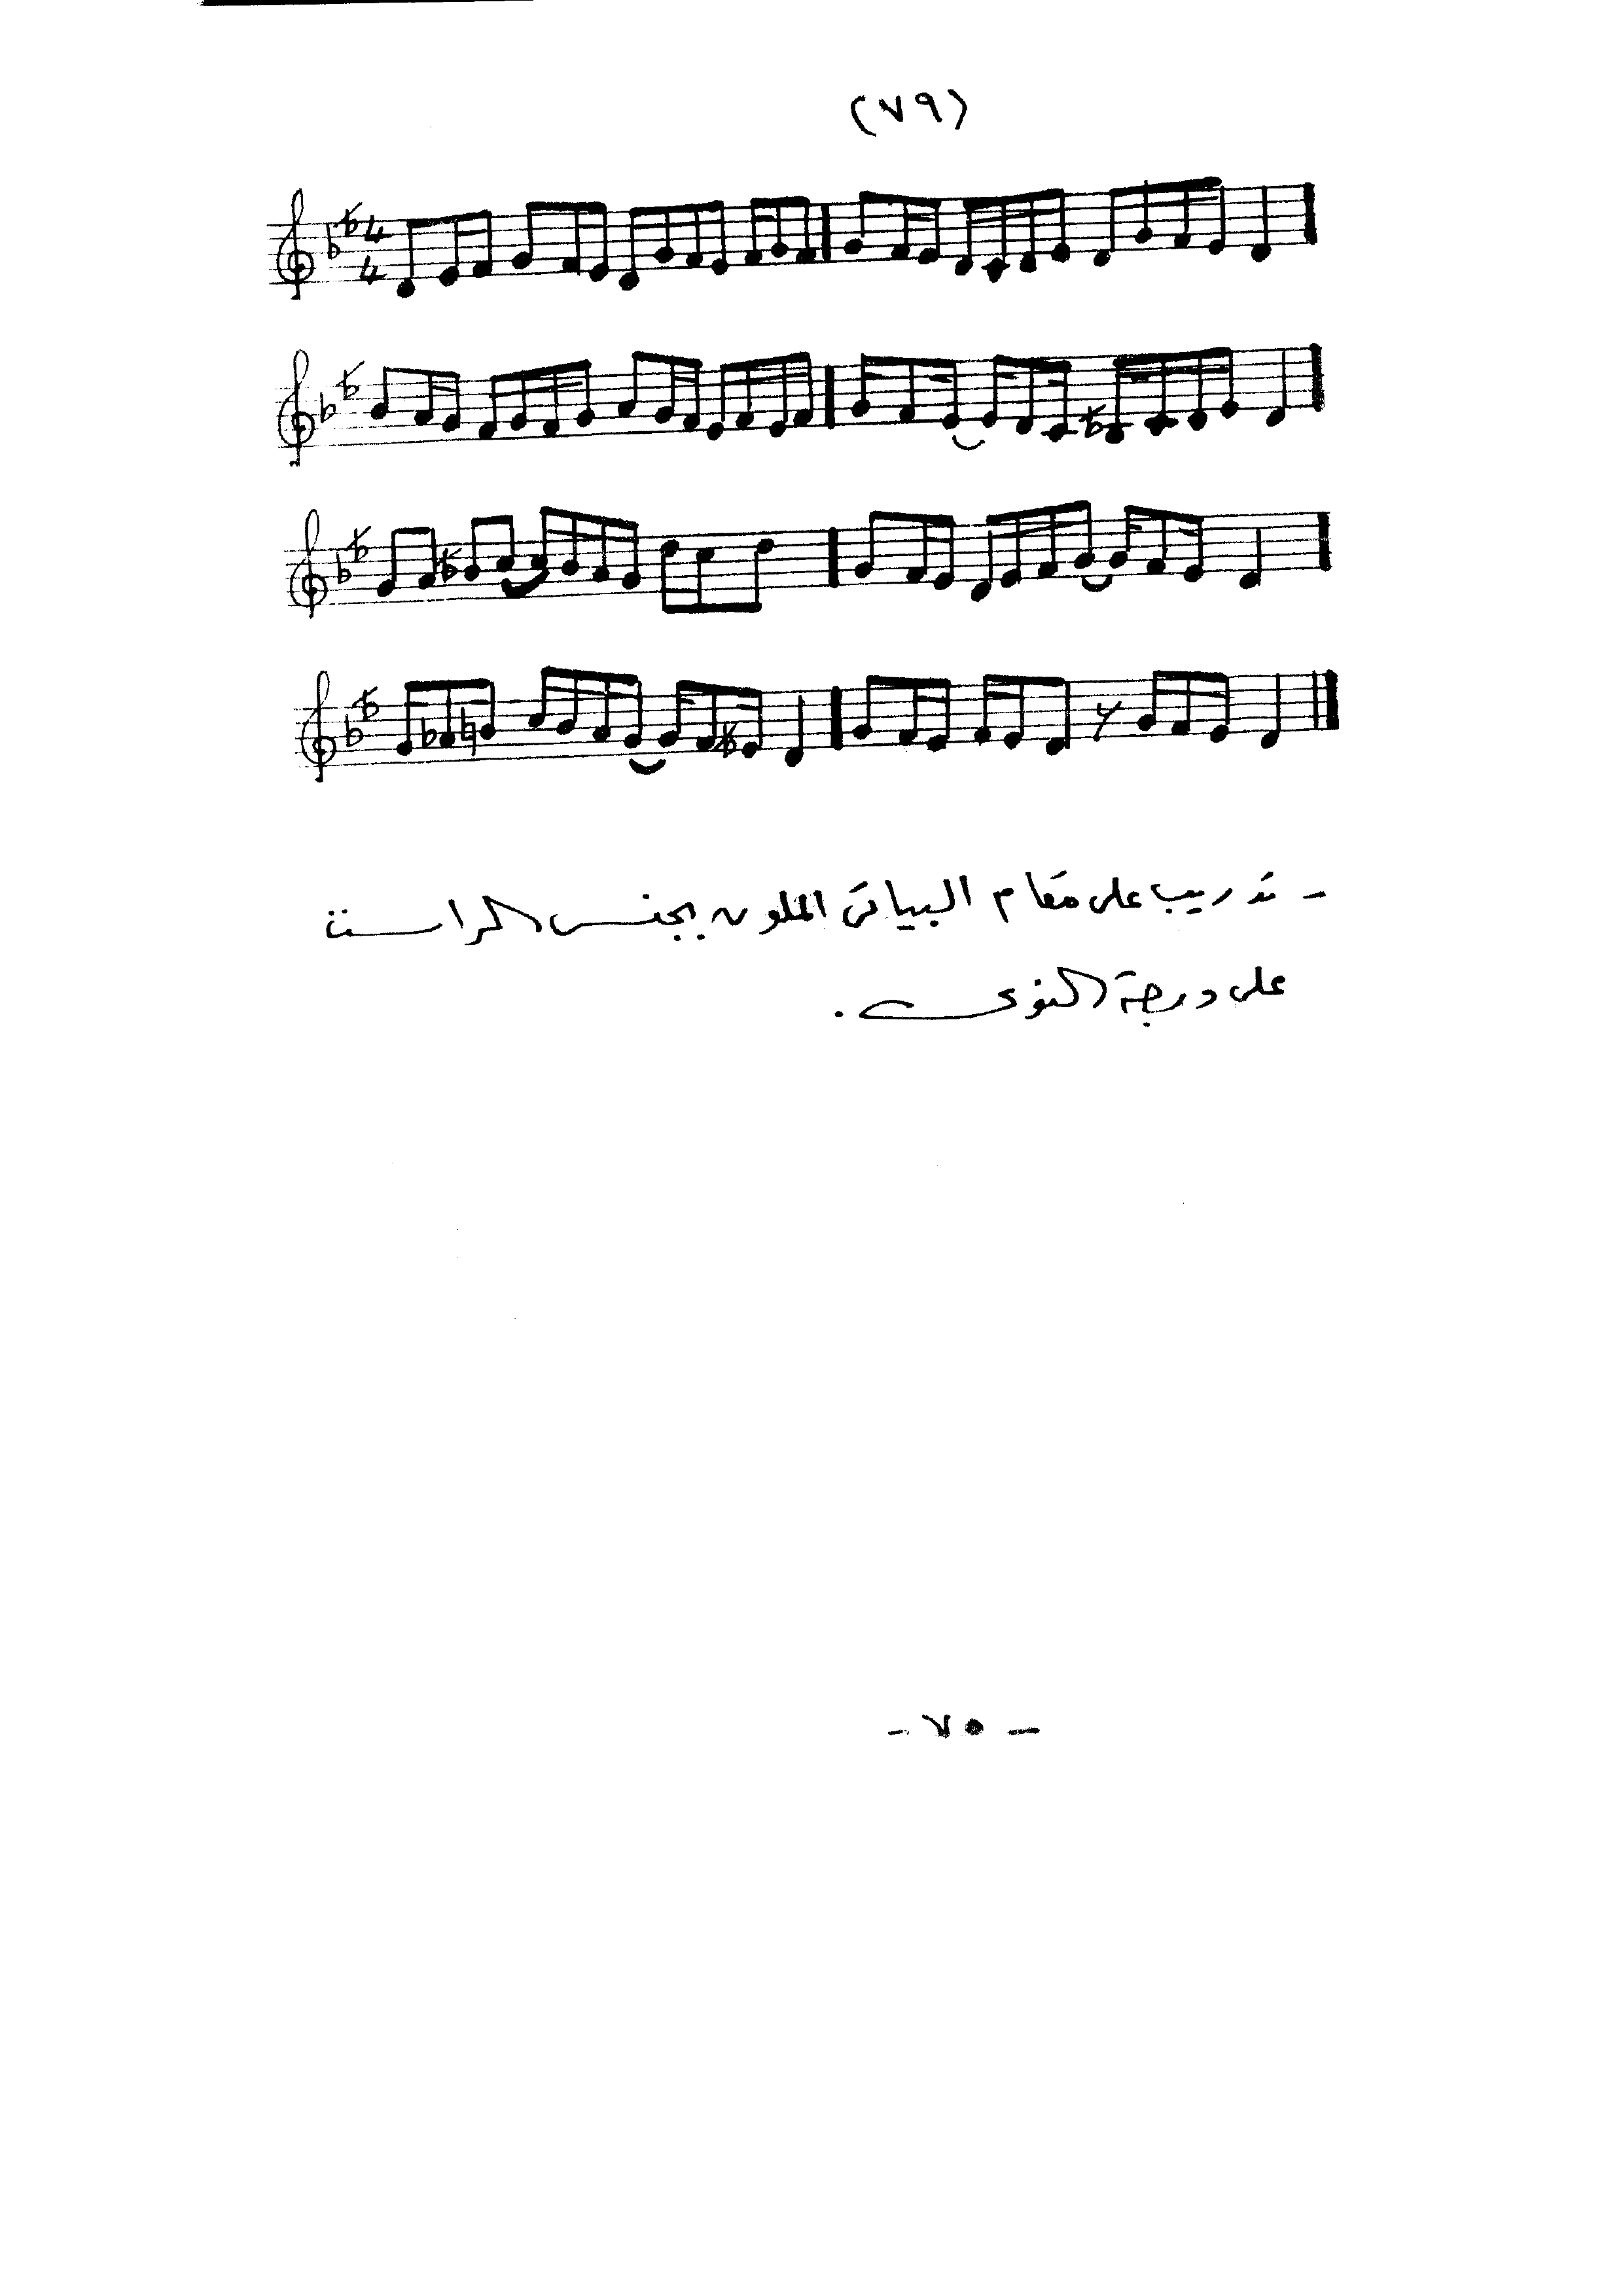 (٧٩)
4
4
- تدريب على مقام البياتى الملون بجنس الراست
على درجة النوى .
- ٧٥ -